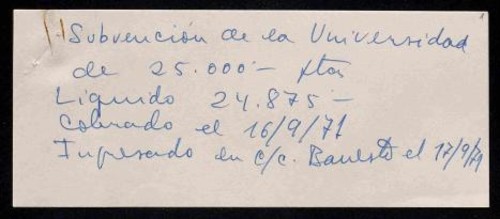 Subvención de la Universidad
de 25.000— ptas
Líquido 24.875—
Cobrado el 16/9/71
Ingresado en c/c. Banesto el 17/9/71